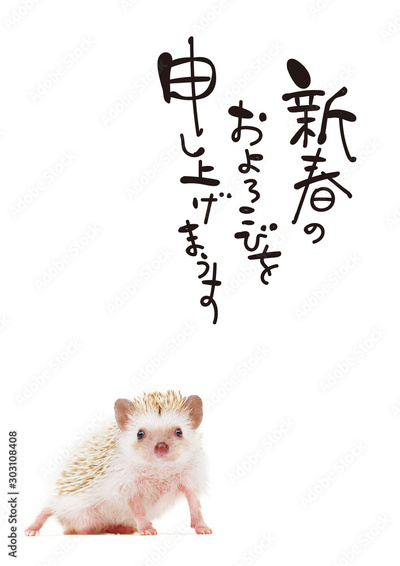 新春の
およろこびを
申し上げまうす
Adobe Stock | #303108408